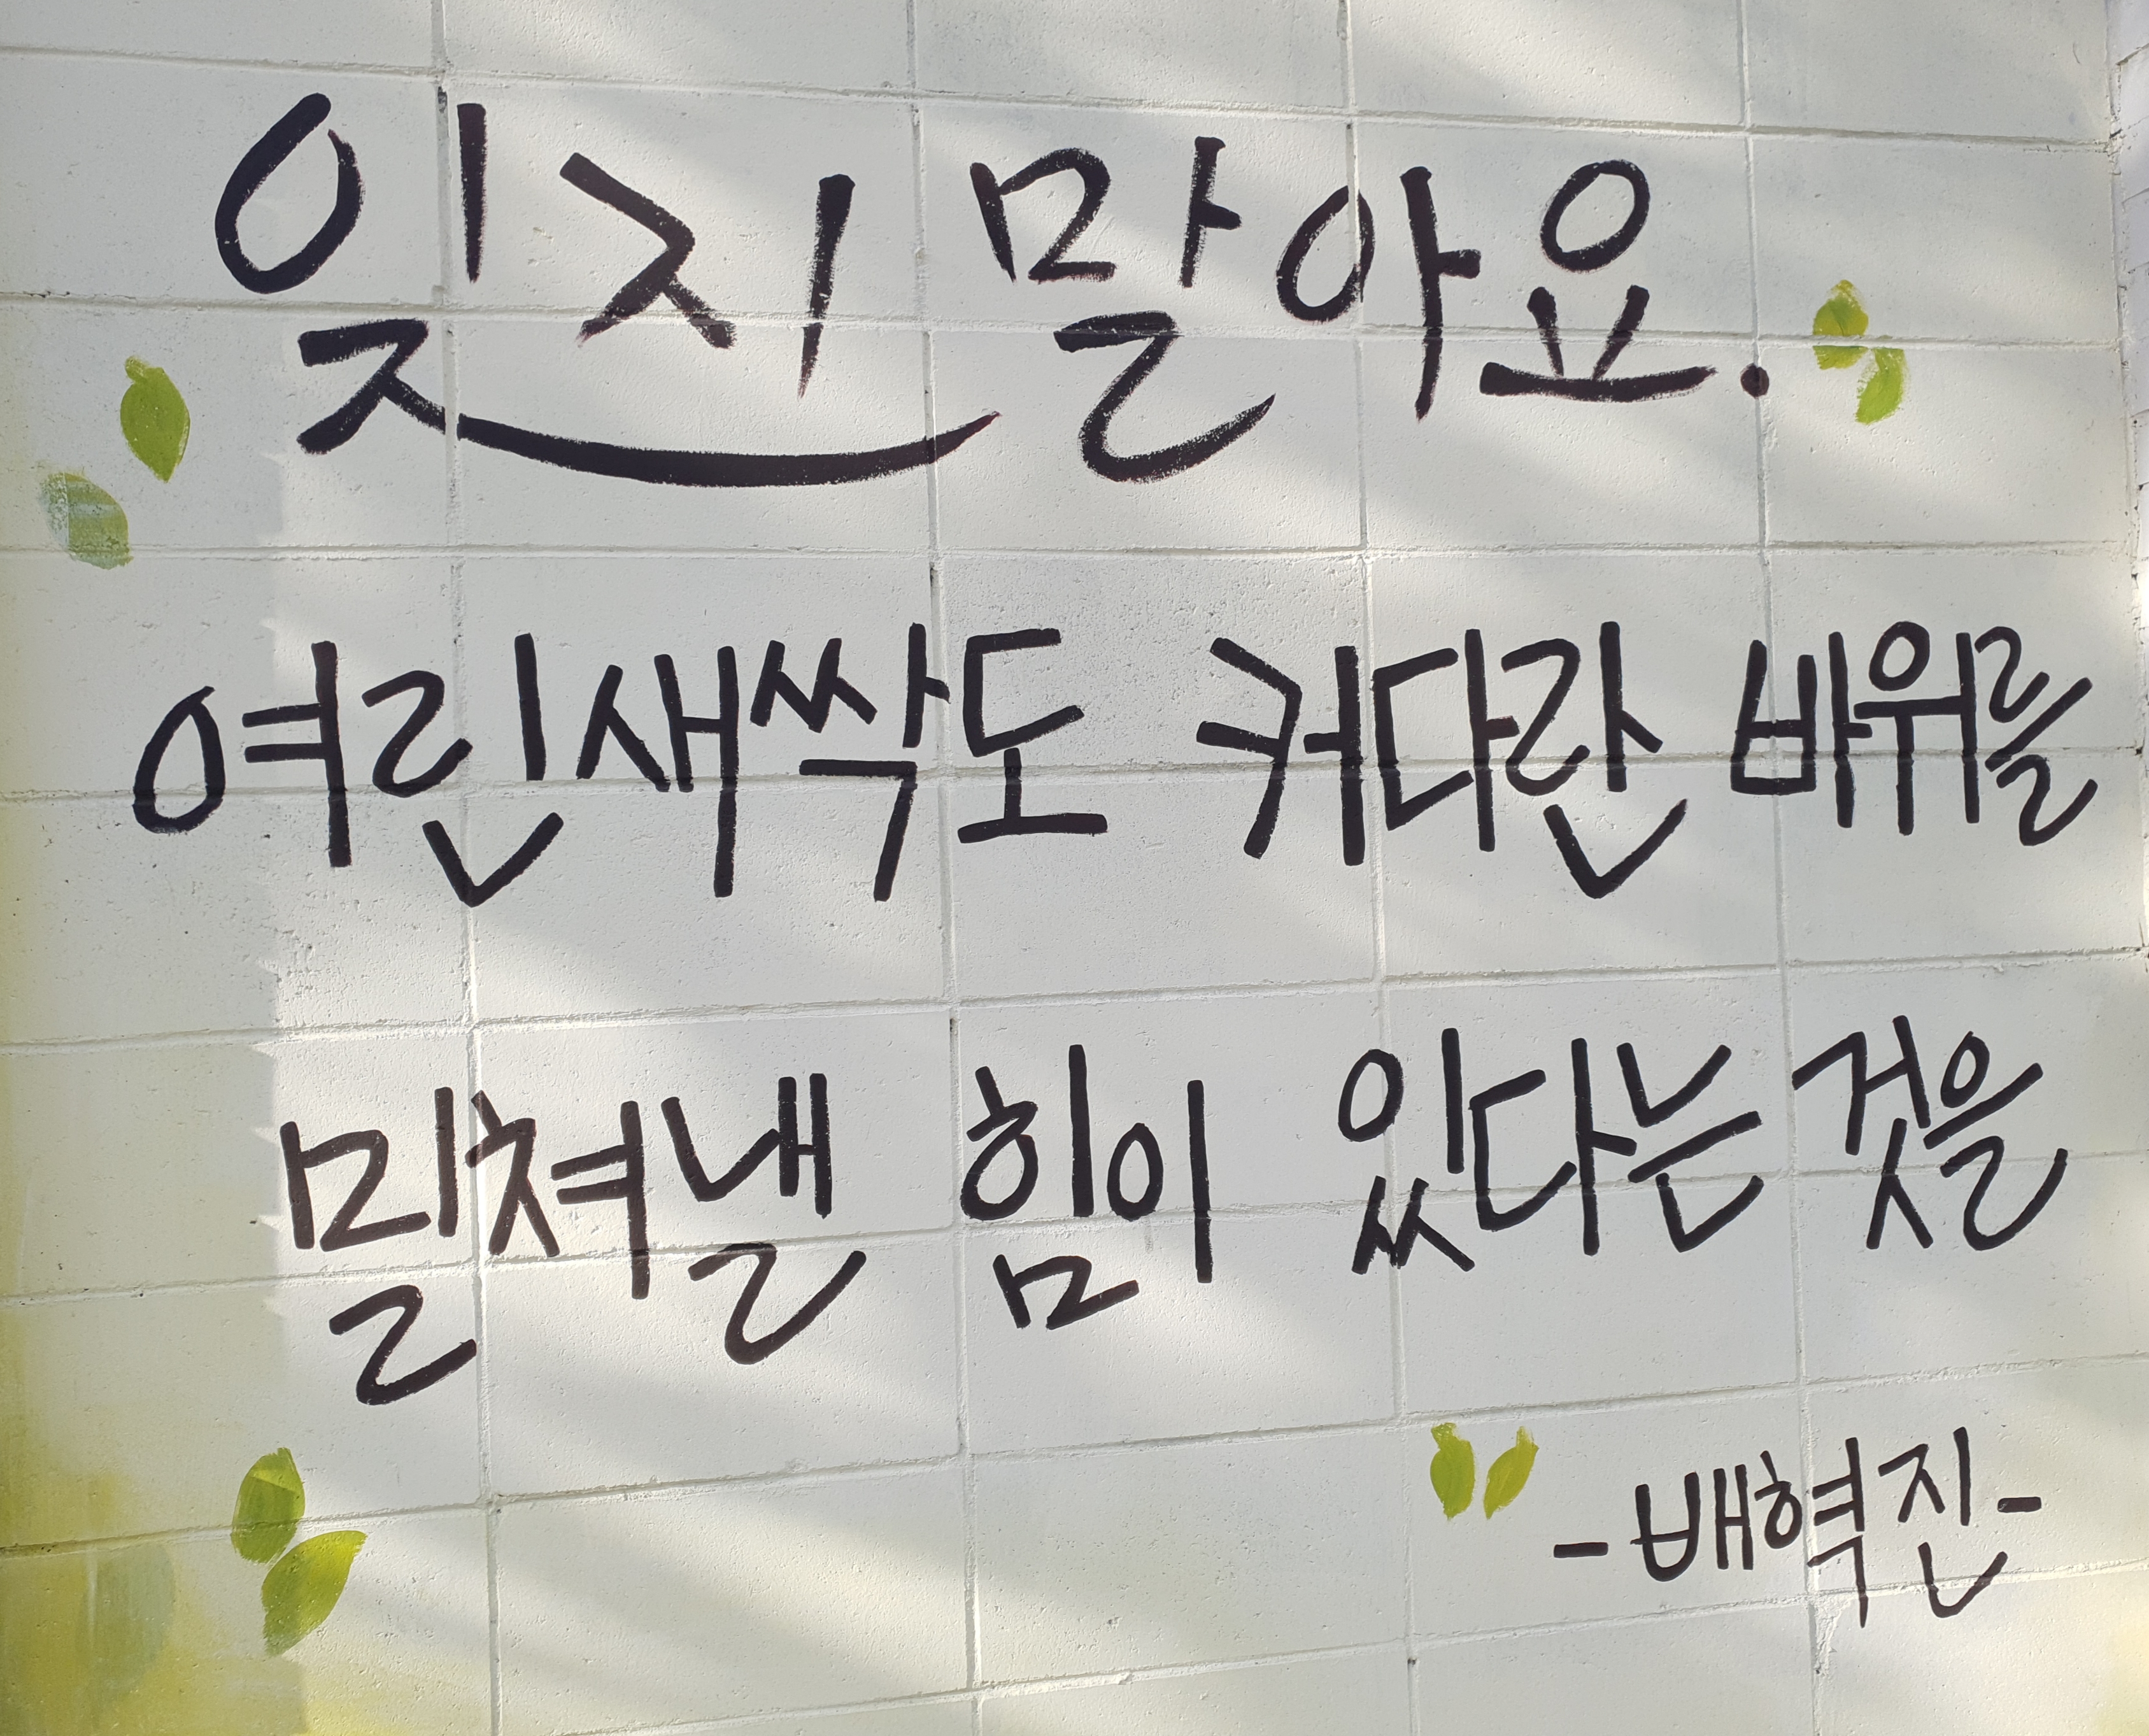 잊지 말아요.
여린새싹도 커다란 바위를
밀쳐낼 힘이 있다는 것을
-배혁진-